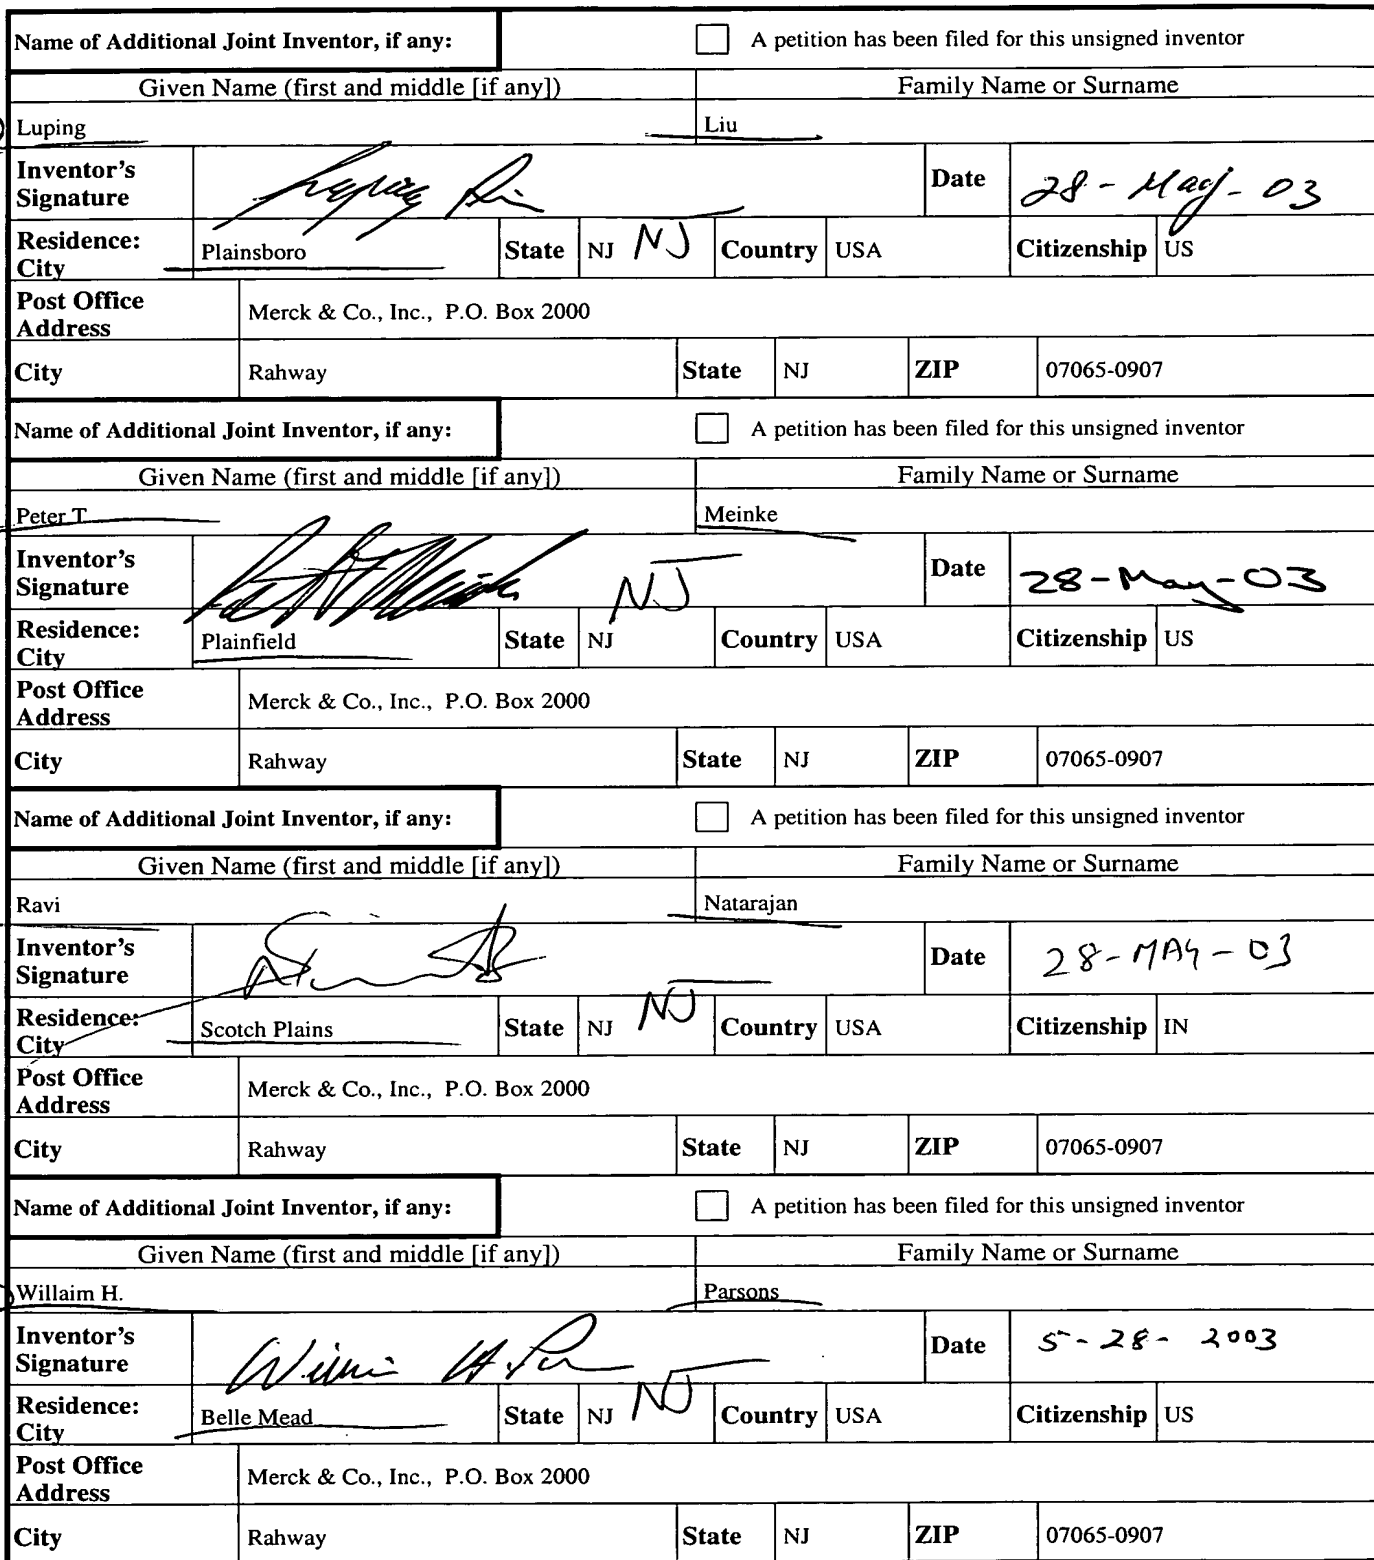 Name of Additional Joint Inventor, if any: A petition has been filed for this unsigned inventor
Given Name (first and middle [if any]) Family Name or Surname
Luping Liu
Inventor's Signature Date 28-May-03
Residence: City Plainsboro State NJ NJ Country USA Citizenship US
Post Office Address Merck & Co., Inc., P.O. Box 2000
City Rahway State NJ ZIP 07065-0907
Name of Additional Joint Inventor, if any: A petition has been filed for this unsigned inventor
Given Name (first and middle [if any]) Family Name or Surname
Peter T Meinke
Inventor's Signature NJ Date 28-May-03
Residence: City Plainfield State NJ Country USA Citizenship US
Post Office Address Merck & Co., Inc., P.O. Box 2000
City Rahway State NJ ZIP 07065-0907
Name of Additional Joint Inventor, if any: A petition has been filed for this unsigned inventor
Given Name (first and middle [if any]) Family Name or Surname
Ravi Natarajan
Inventor's Signature Date 28-MAY-03
Residence: City Scotch Plains State NJ NJ Country USA Citizenship IN
Post Office Address Merck & Co., Inc., P.O. Box 2000
City Rahway State NJ ZIP 07065-0907
Name of Additional Joint Inventor, if any: A petition has been filed for this unsigned inventor
Given Name (first and middle [if any]) Family Name or Surname
Willaim H. Parsons
Inventor's Signature Date 5-28-2003
Residence: City Belle Mead State NJ NJ Country USA Citizenship US
Post Office Address Merck & Co., Inc., P.O. Box 2000
City Rahway State NJ ZIP 07065-0907